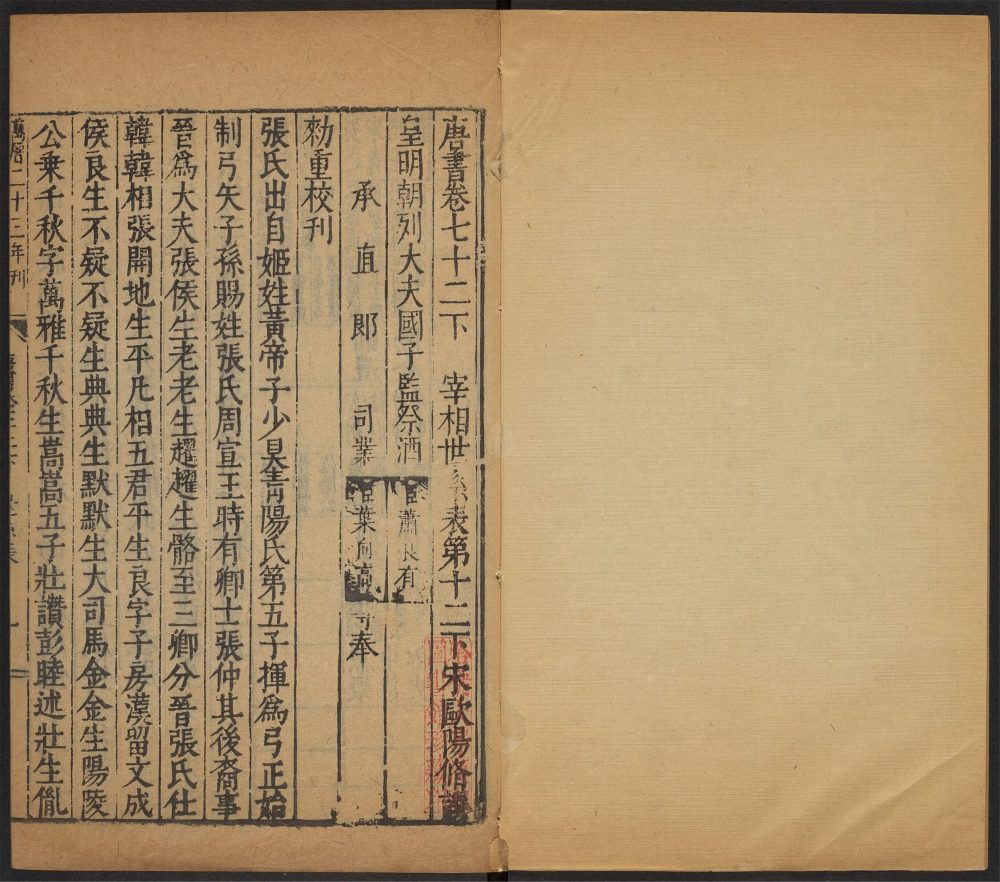 唐書卷七十二下　宰相世系表第十二下　宋歐陽脩譔
皇明朝列大夫國子監祭酒臣蕭良有
承直郎　司業臣葉向高等奉
勑重校刊
張氏出自姬姓黃帝子少昊靑陽氏第五子揮爲弓正始
制弓矢子孫賜姓張氏周宣王時有卿士張仲其後裔事
晉爲大夫張侯生老老生趯趯生骼至三卿分晉張氏仕
韓韓相張開地生平凡相五君平生良字子房漢留文成
侯良生不疑不疑生典典生默默生大司馬金金生陽陵
公乗千秋字萬雅千秋生嵩嵩五子壯讚彭睦述壯生胤
二十三年刊